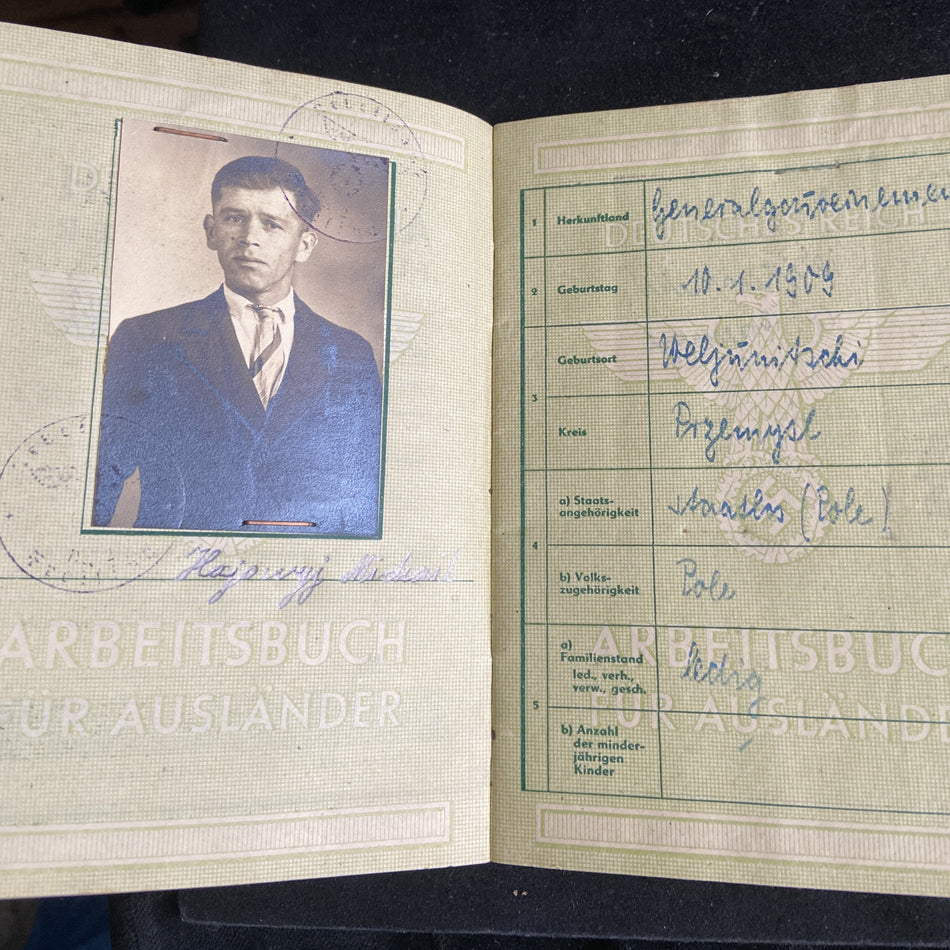 Hajowyj Michael
ARBEITSBUCH
FÜR AUSLÄNDER
DEUTSCHES REICH
1 Herkunftland Generalgouvernemen
2 Geburtstag 10.1.1909
3 Geburtsort Weljunitschi
Kreis Przemysl
4 a) Staats-
angehörigkeit staatlos (Pole)
b) Volks-
zugehörigkeit Pole
5 a)
Familienstand ledig
led., verh.,
verw., gesch.
b) Anzahl
der minder-
jährigen
Kinder
ARBEITSBUC
FÜR AUSLÄNDE